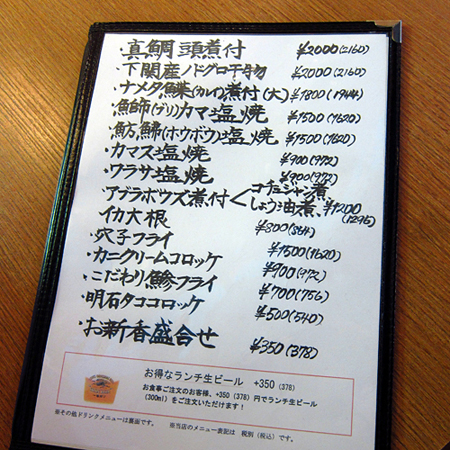 ・真鯛頭煮付 ¥2000(2160)
・下関産ノドグロ干物 ¥2000(2160)
・ナメタ鰈(カレイ)煮付(大) ¥1800(1944)
・鰤(ブリ)カマ塩焼 ¥1500(1620)
・魴鮄(ホウボウ)塩焼 ¥1500(1620)
・カマス塩焼 ¥900(972)
・ワラサ塩焼 ¥900(972)
・アブラボウズ煮付<コチュジャン煮
しょう油煮、¥1200(1296)
・イカ大根 ¥800(864)
・穴子フライ ¥1500(1620)
・カニクリームコロッケ ¥900(972)
・こだわり鯵フライ ¥700(756)
・明石タココロッケ ¥500(540)
・お新香盛合せ ¥350(378)
お得なランチ生ビール +350(378)
お食事ご注文のお客様、+350(378)円でランチ生ビール
(300ml)をご注文いただけます!
※その他ドリンクメニューは裏面です。 ※当店のメニュー表記は 税別(税込)です。